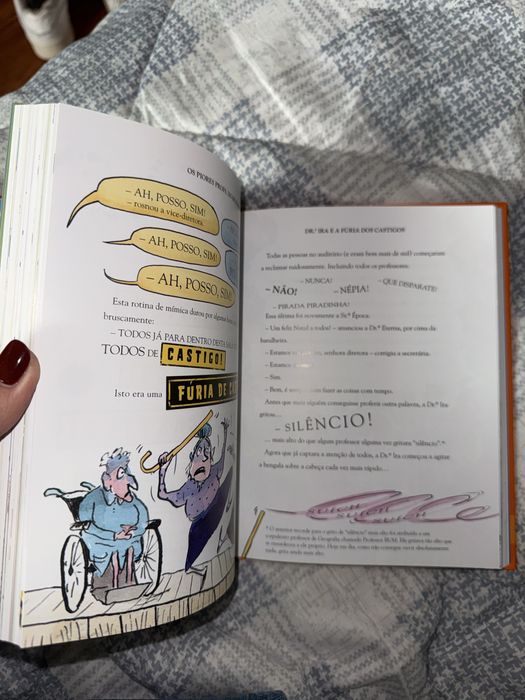 OS PIORES PROF
– AH, POSSO, SIM!
– rosnou a vice-diretora.
– AH, POSSO, SIM!
– AH, POSSO, SIM!
Esta rotina de mímica durou por algumas
bruscamente:
– TODOS JÁ PARA DENTRO DESTA
TODOS DE CASTIGO!
Isto era uma FÚRIA DE
DR.ª IRA E A FÚRIA DOS CASTIGOS
Todas as pessoas no auditório (e eram bem mais de mil) começaram
a reclamar ruidosamente. Incluindo todos os professores:
– NUNCA!
– QUE DISPARATE!
– NÃO!
– NÉPIA!
– PIRADA PIRADINHA!
Esta última foi novamente a Sr.ª Época.
– Um feliz Natal a todos! – anunciou a Dr.ª Eterna, por cima da
barulheira.
– Estamos senhora diretora – corrigiu a secretária.
– Estamos
– Sim.
– Bem, é fazer as coisas com tempo.
Antes que mais alguém conseguisse proferir outra palavra, a Dr.ª Ira
gritou…
– SILÊNCIO!
… mais alto do que algum professor alguma vez gritara "silêncio".*
Agora que já captara a atenção de todos, a Dr.ª Ira começou a agitar
a bengala sobre a cabeça cada vez mais rápido…
SUICH
SUICH
SUICH
* O anterior recorde para o grito de "silêncio" mais alto foi atribuído a um
professor de Geografia chamado Professor BUM. Ele gritava tão alto que
se ensurdeceu a ele próprio. Hoje em dia, como não consegue ouvir absolutamente
nada, grita ainda mais alto.